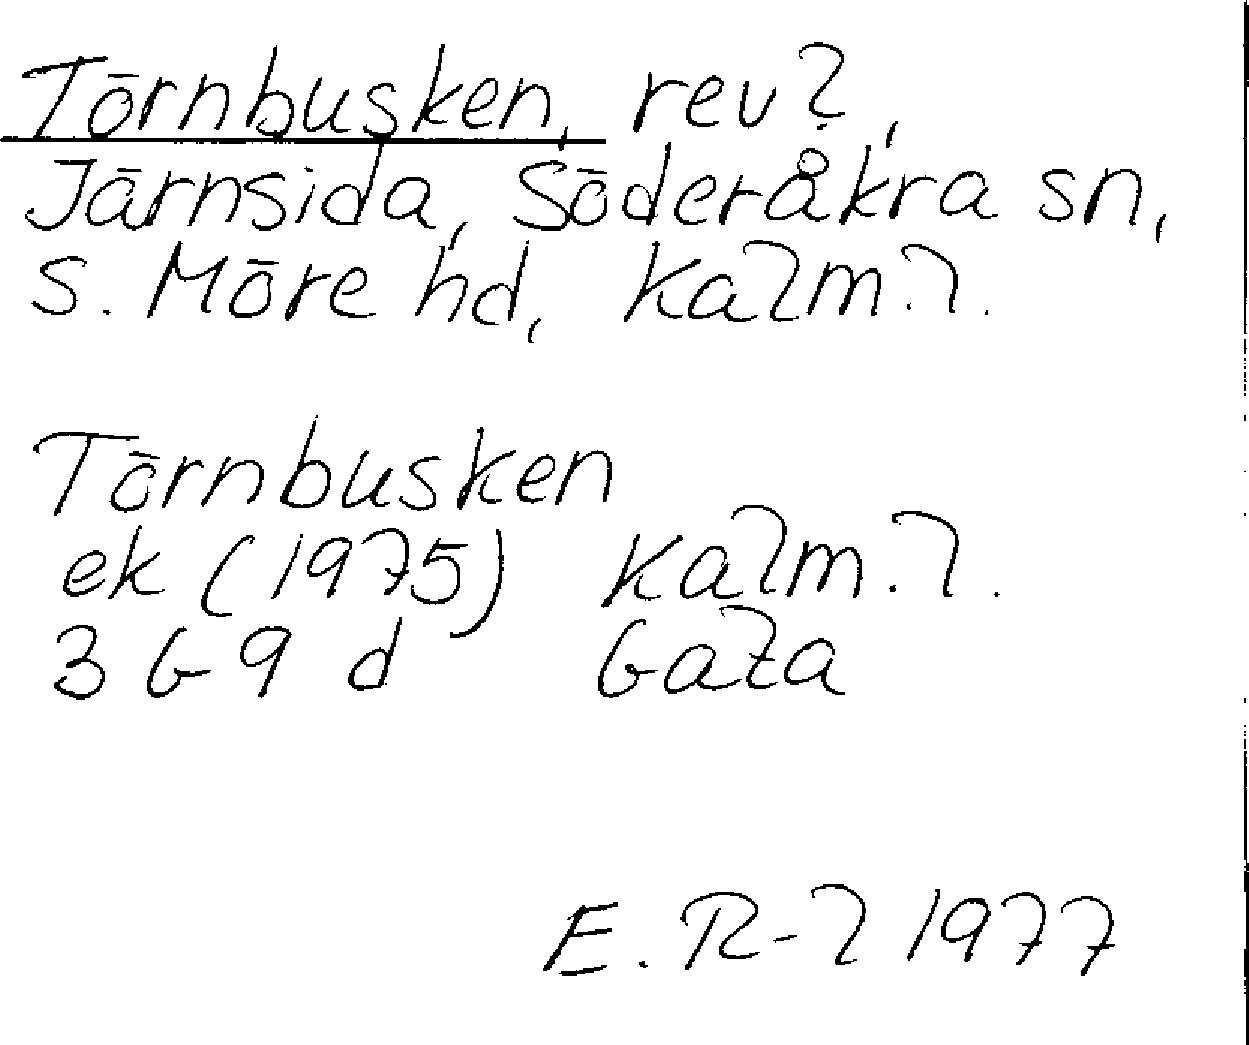 Törnbusken, rev?,
Järnsida, Söderåkra sn,
S. Möre hd, Kalm.l.
Törnbusken
ek (1975) Kalm.l.
3 G 9 d Gaza
E. R-l 1977